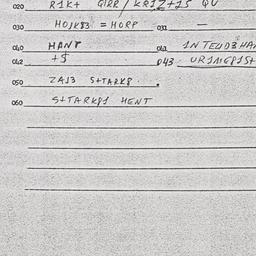 020 R1K+ GIRR / KR1Z+15 QU
030 HOJK83 = HORP 031 —
040 HANT 041 1NTEUD3 HA
042 +5 043 UR1MEP15+
050 ZA13 S+TARK8.
060 S+TARKP1 HENT